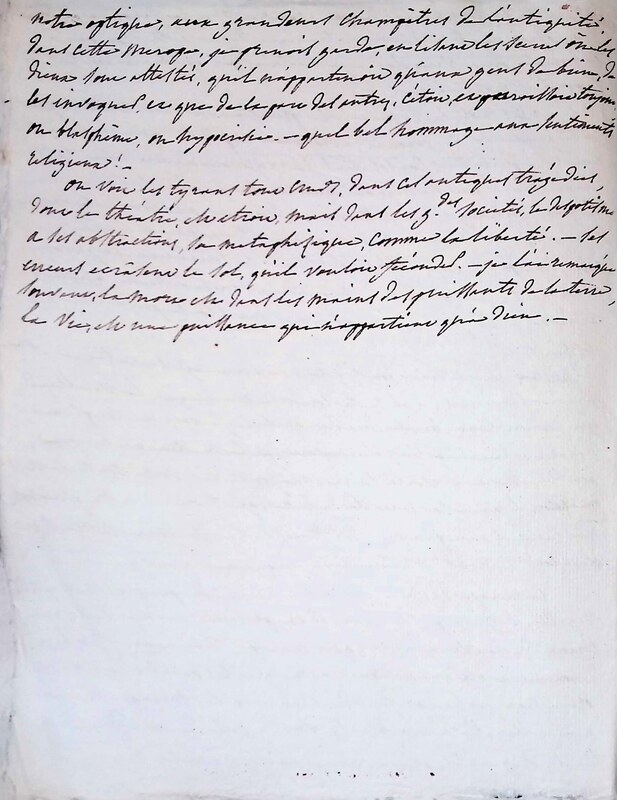 notre optique, aux grandeurs champêtres de l'antiquité.
dans cette Merope, je prenois garde, en lisant les scenes où les
dieux sont attestés, qu'il n'appartenoit qu'aux gens de bien, de
les invoquer, et que de la part des autres, c'étoit, et paroissoit toujours
ou blasphème, ou hypocrisie. — quel bel hommage aux sentiments
religieux! —
on voit les tyrans tout cruds, dans ces antiques tragédies,
dont le théatre, est étroit, mais dans les g.des societés, le despotisme
a ses abstractions, sa metaphisique, comme la liberté. — ses
erreurs ecrasent le sol, qu'il vouloit féconder. — je l'ai remarqué
souvent, la mort est dans les mains des puissants de la terre,
la vie, est une puissance qui n'appartient qu'à dieu. —